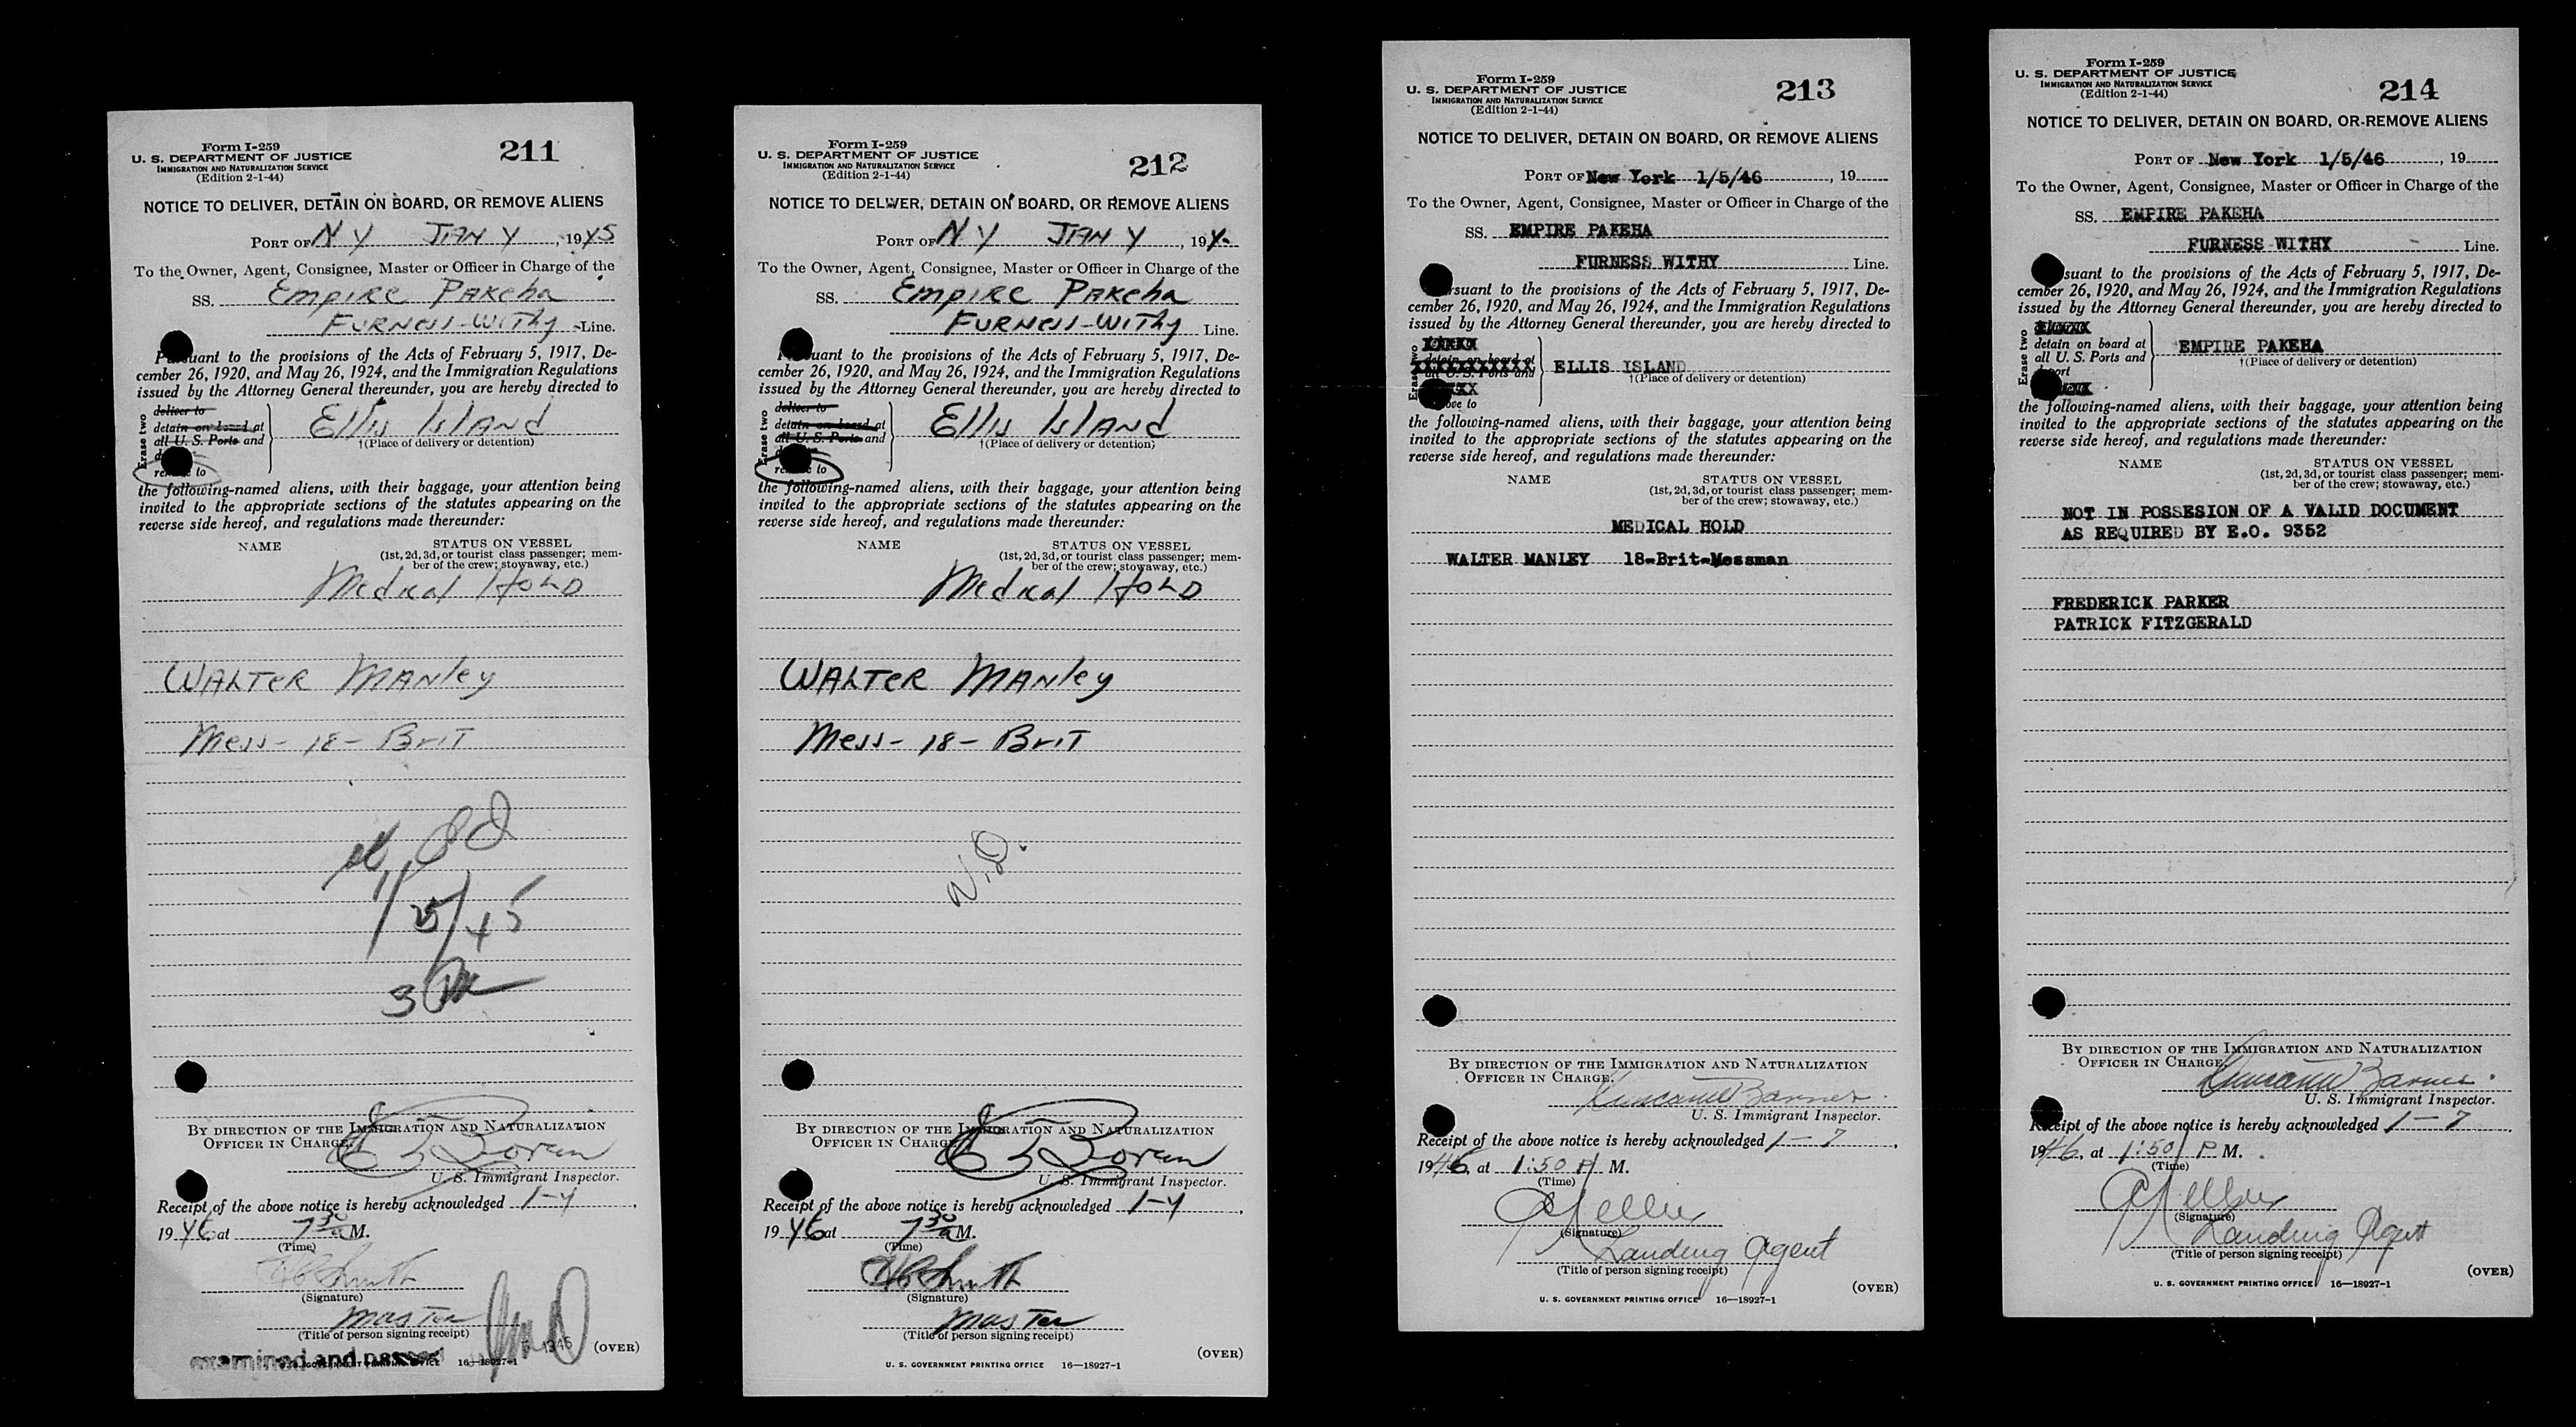 Form I-259
U. S. DEPARTMENT OF JUSTICE
IMMIGRATION AND NATURALIZATION SERVICE
(Edition 2-1-44)
211
NOTICE TO DELIVER, DETAIN ON BOARD, OR REMOVE ALIENS
PORT OF N Y JAN Y, 1945
To the Owner, Agent, Consignee, Master or Officer in Charge of the
SS. Empire Pakeha
Furness-Withy Line.
Pursuant to the provisions of the Acts of February 5, 1917, De-
cember 26, 1920, and May 26, 1924, and the Immigration Regulations
issued by the Attorney General thereunder, you are hereby directed to
Erase two
deliver to
detain on board at
all U. S. Ports and
Ellis Island
†(Place of delivery or detention)
to
the following-named aliens, with their baggage, your attention being
invited to the appropriate sections of the statutes appearing on the
reverse side hereof, and regulations made thereunder:
NAME STATUS ON VESSEL
(1st, 2d, 3d, or tourist class passenger; mem-
ber of the crew; stowaway, etc.)
Medical Hold
Walter Manley
Mess- 18- Brit
1/25/45
3
BY DIRECTION OF THE IMMIGRATION AND NATURALIZATION
OFFICER IN CHARGE.
U. S. Immigrant Inspector.
Receipt of the above notice is hereby acknowledged 1-4,
1946 at 7 30 a M.
(Time)
Smith
(Signature)
Master
(Title of person signing receipt)
examined and passed
U. S. GOVERNMENT PRINTING OFFICE 16—18927-1
(OVER)
Form I-259
U. S. DEPARTMENT OF JUSTICE
IMMIGRATION AND NATURALIZATION SERVICE
(Edition 2-1-44)
212
NOTICE TO DELIVER, DETAIN ON BOARD, OR REMOVE ALIENS
PORT OF N Y JAN Y, 194
To the Owner, Agent, Consignee, Master or Officer in Charge of the
SS. Empire Pakeha
Furness-Withy Line.
Pursuant to the provisions of the Acts of February 5, 1917, De-
cember 26, 1920, and May 26, 1924, and the Immigration Regulations
issued by the Attorney General thereunder, you are hereby directed to
Erase two
deliver to
detain on board at
all U. S. Ports and
Ellis Island
†(Place of delivery or detention)
to
the following-named aliens, with their baggage, your attention being
invited to the appropriate sections of the statutes appearing on the
reverse side hereof, and regulations made thereunder:
NAME STATUS ON VESSEL
(1st, 2d, 3d, or tourist class passenger; mem-
ber of the crew; stowaway, etc.)
Medical Hold
Walter Manley
Mess- 18- Brit
BY DIRECTION OF THE IMMIGRATION AND NATURALIZATION
OFFICER IN CHARGE
U. S. Immigrant Inspector.
Receipt of the above notice is hereby acknowledged 1-4,
1946 at 7 30 a M.
(Time)
Smith
(Signature)
Master
(Title of person signing receipt)
(OVER)
U. S. GOVERNMENT PRINTING OFFICE 16—18927-1
Form I-259
U. S. DEPARTMENT OF JUSTICE
IMMIGRATION AND NATURALIZATION SERVICE
(Edition 2-1-44)
213
NOTICE TO DELIVER, DETAIN ON BOARD, OR REMOVE ALIENS
PORT OF New York 1/5/46, 19
To the Owner, Agent, Consignee, Master or Officer in Charge of the
SS. EMPIRE PAKEHA
FURNESS WITHY Line.
rsuant to the provisions of the Acts of February 5, 1917, De-
cember 26, 1920, and May 26, 1924, and the Immigration Regulations
issued by the Attorney General thereunder, you are hereby directed to
Erase two
detain on board at
all U. S. Ports and
ELLIS ISLAND
†(Place of delivery or detention)
ove to
the following-named aliens, with their baggage, your attention being
invited to the appropriate sections of the statutes appearing on the
reverse side hereof, and regulations made thereunder:
NAME STATUS ON VESSEL
(1st, 2d, 3d, or tourist class passenger; mem-
ber of the crew; stowaway, etc.)
MEDICAL HOLD
WALTER MANLEY 18-Brit-Messman
BY DIRECTION OF THE IMMIGRATION AND NATURALIZATION
OFFICER IN CHARGE.
Barnes
U. S. Immigrant Inspector.
Receipt of the above notice is hereby acknowledged 1-7,
1946, at 1:50 P. M.
(Time)
(Signature)
Landing Agent
(Title of person signing receipt)
(OVER)
U. S. GOVERNMENT PRINTING OFFICE 16—18927-1
Form I-259
U. S. DEPARTMENT OF JUSTICE
IMMIGRATION AND NATURALIZATION SERVICE
(Edition 2-1-44)
214
NOTICE TO DELIVER, DETAIN ON BOARD, OR REMOVE ALIENS
PORT OF New York 1/5/46, 19
To the Owner, Agent, Consignee, Master or Officer in Charge of the
SS. EMPIRE PAKEHA
FURNESS WITHY Line.
suant to the provisions of the Acts of February 5, 1917, De-
cember 26, 1920, and May 26, 1924, and the Immigration Regulations
issued by the Attorney General thereunder, you are hereby directed to
Erase two
detain on board at
all U. S. Ports and
port
EMPIRE PAKEHA
†(Place of delivery or detention)
the following-named aliens, with their baggage, your attention being
invited to the appropriate sections of the statutes appearing on the
reverse side hereof, and regulations made thereunder:
NAME STATUS ON VESSEL
(1st, 2d, 3d, or tourist class passenger; mem-
ber of the crew; stowaway, etc.)
NOT IN POSSESION OF A VALID DOCUMENT
AS REQUIRED BY E.O. 9352
FREDERICK PARKER
PATRICK FITZGERALD
BY DIRECTION OF THE IMMIGRATION AND NATURALIZATION
OFFICER IN CHARGE.
Barnes
U. S. Immigrant Inspector.
Receipt of the above notice is hereby acknowledged 1-7,
1946, at 1:50 P. M.
(Time)
(Signature)
Landing Agent
(Title of person signing receipt)
(OVER)
U. S. GOVERNMENT PRINTING OFFICE 16—18927-1